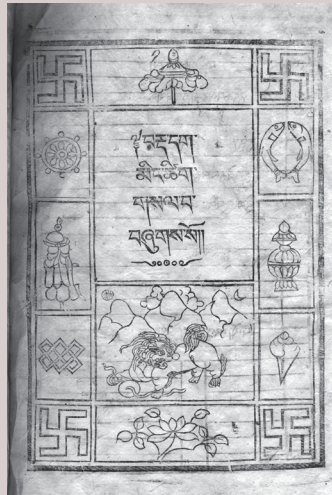 ༄།བརྡ་དག་
མིང་ཚིག་
གསལ་བ་
བཞུགས་སོ།།